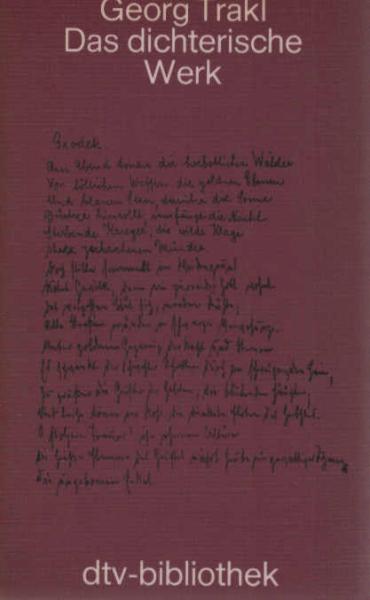 Georg Trakl
Das dichterische
Werk
Grodek.
Am Abend tönen die herbstlichen Wälder
Von tödlichen Waffen, die goldnen Ebenen
Und blauen Seen, darüber die Sonne
Düstrer hinrollt; umfängt die Nacht
Sterbende Krieger, die wilde Klage
Ihrer zerbrochenen Münder.
Doch stille sammelt im Weidengrund
Rotes Gewölk, darin ein zürnender Gott wohnt
Das vergossne Blut sich, mondne Kühle;
Alle Straßen münden in schwarze
Unter goldnem Gezweig der Nacht und Sternen
Es schwankt der Schwester Schatten durch den schweigenden Hain,
Zu grüßen die Geister der Helden, die blutenden Häupter;
Und leise tönen im Rohr die dunkeln Flöten des Herbstes.
O stolzere Trauer! ihr ehernen Altäre
Die heiße Flamme des Geistes nährt heute ein gewaltiger Schmerz,
Die ungebornen Enkel.
dtv-bibliothek